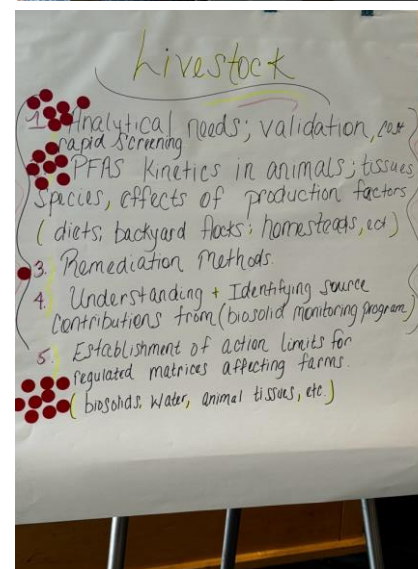 Livestock
1. Analytical needs; validation, cost
rapid screening
PFAS Kinetics in animals; tissues,
Species, effects of production factors
( diets, backyard flocks; homesteads, ect)
3. Remediation Methods.
4. Understanding + Identifying source
Contributions from (biosolid monitoring program)
5. Establishment of action limits for
regulated matrices affecting farms.
( biosolids, water, animal tissues, etc.)